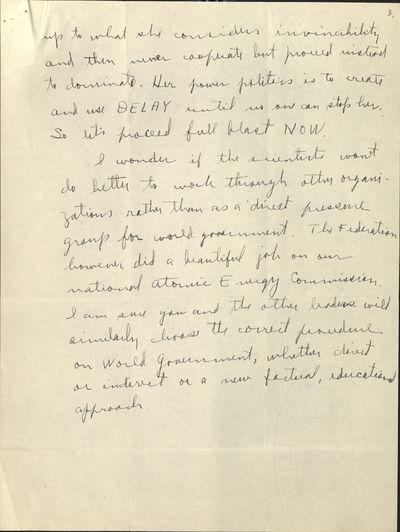 3.
up to what she considers invincibility
and then never cooperate but proceed instead
to dominate. Her power politics is to create
and use DELAY until no one can stop her.
So let's proceed full blast NOW.
I wonder if the scientists won't
do better to work through other organi-
zations rather than as a direct pressure
group for world government. The Federation
however did a beautiful job on our
national Atomic Energy Commission.
I am sure you and the other leaders will
similarly choose the correct procedure
on World Government, whether direct
or indirect or a new factual, educational
approach.